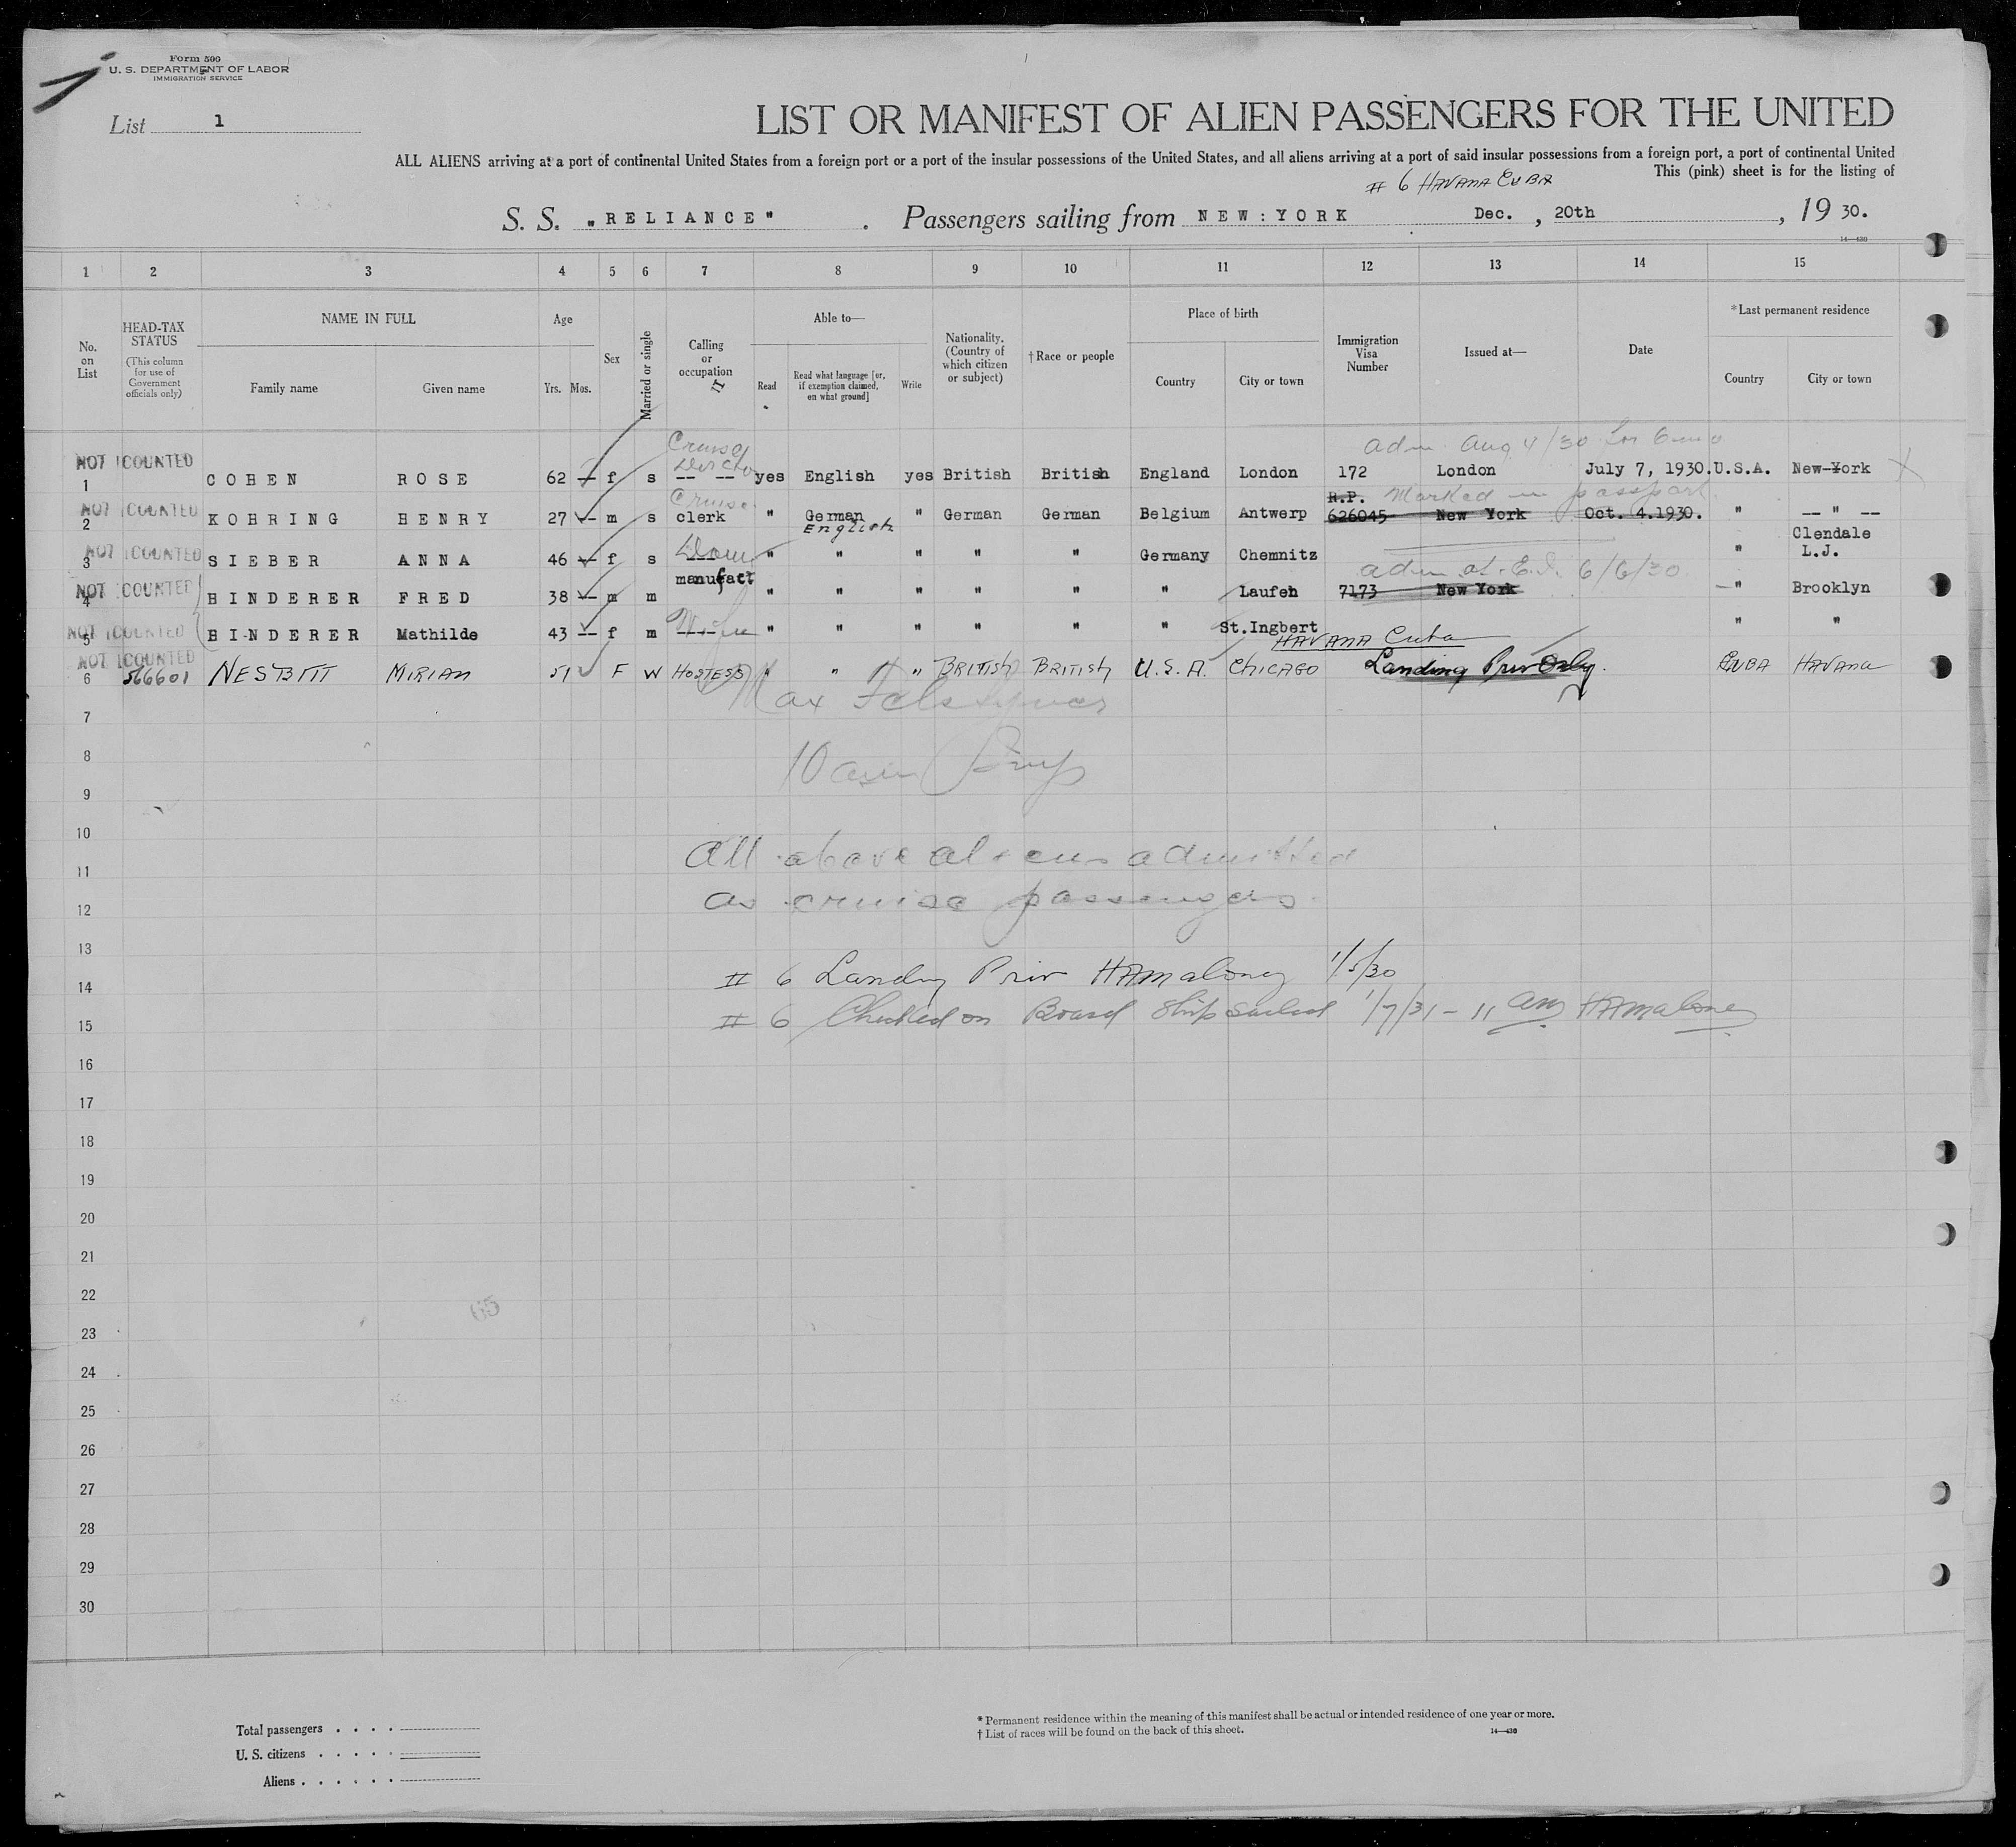 Form 500
U. S. DEPARTMENT OF LABOR
IMMIGRATION SERVICE
List 1
LIST OR MANIFEST OF ALIEN PASSENGERS FOR THE UNITED
ALL ALIENS arriving at a port of continental United States from a foreign port or a port of the insular possessions of the United States, and all aliens arriving at a port of said insular possessions from a foreign port, a port of continental United
This (pink) sheet is for the listing of
# 6 HAVANA CUBA
S. S. "RELIANCE". Passengers sailing from NEW:YORK Dec. , 20th , 19 30.
14—430
1 2 3 4 5 6 7 8 9 10 11 12 13 14 15
No. on List
HEAD-TAX STATUS
(This column for use of Government officials only)
NAME IN FULL
Family name Given name
Age
Yrs. Mos.
Sex
Married or single
Calling or occupation
Able to—
Read
Read what language [or, if exemption claimed, on what ground]
Write
Nationality. (Country of which citizen or subject)
† Race or people
Place of birth
Country City or town
Immigration Visa Number
Issued at—
Date
*Last permanent residence
Country City or town
adm. Aug 4/30
NOT COUNTED
1 COHEN ROSE 62 -- f s -- -- yes English yes British British England London 172 London July 7, 1930. U.S.A. New-York
Cruise
R.P. Marked in passport
NOT COUNTED
2 KOHRING HENRY 27 -- m s clerk " German " German German Belgium Antwerp 626045 New York Oct. 4.1930. " -- " --
English
NOT COUNTED
3 SIEBER ANNA 46 -- f s " " " " " Germany Chemnitz " Clendale L.J.
adm at E.I. 6/6/30
NOT COUNTED
4 BINDERER FRED 38 -- m m manufact " " " " " " Laufen 7173 New York " Brooklyn
NOT COUNTED
5 BINDERER Mathilde 43 -- f m Wife " " " " " " St.Ingbert " "
HAVANA Cuba
NOT COUNTED
6 566601 NESBITT MIRIAM 51 F W HOSTESS " " " BRITISH BRITISH U.S.A. CHICAGO Landing Priv Only. CUBA HAVANA
7
Max
8
9
10
All above aliens admitted
11
as cruise passengers
12
13
# 6 Landing Priv HAMaloney 1/5/30
14
# 6 Checked on Board Ship sailed 1/7/31 - 11 am HAMaloney
15
16
17
18
19
20
21
22
65
23
24
25
26
27
28
29
30
Total passengers . . . .
U. S. citizens . . . . .
Aliens . . . . . .
* Permanent residence within the meaning of this manifest shall be actual or intended residence of one year or more.
† List of races will be found on the back of this sheet.
14—430